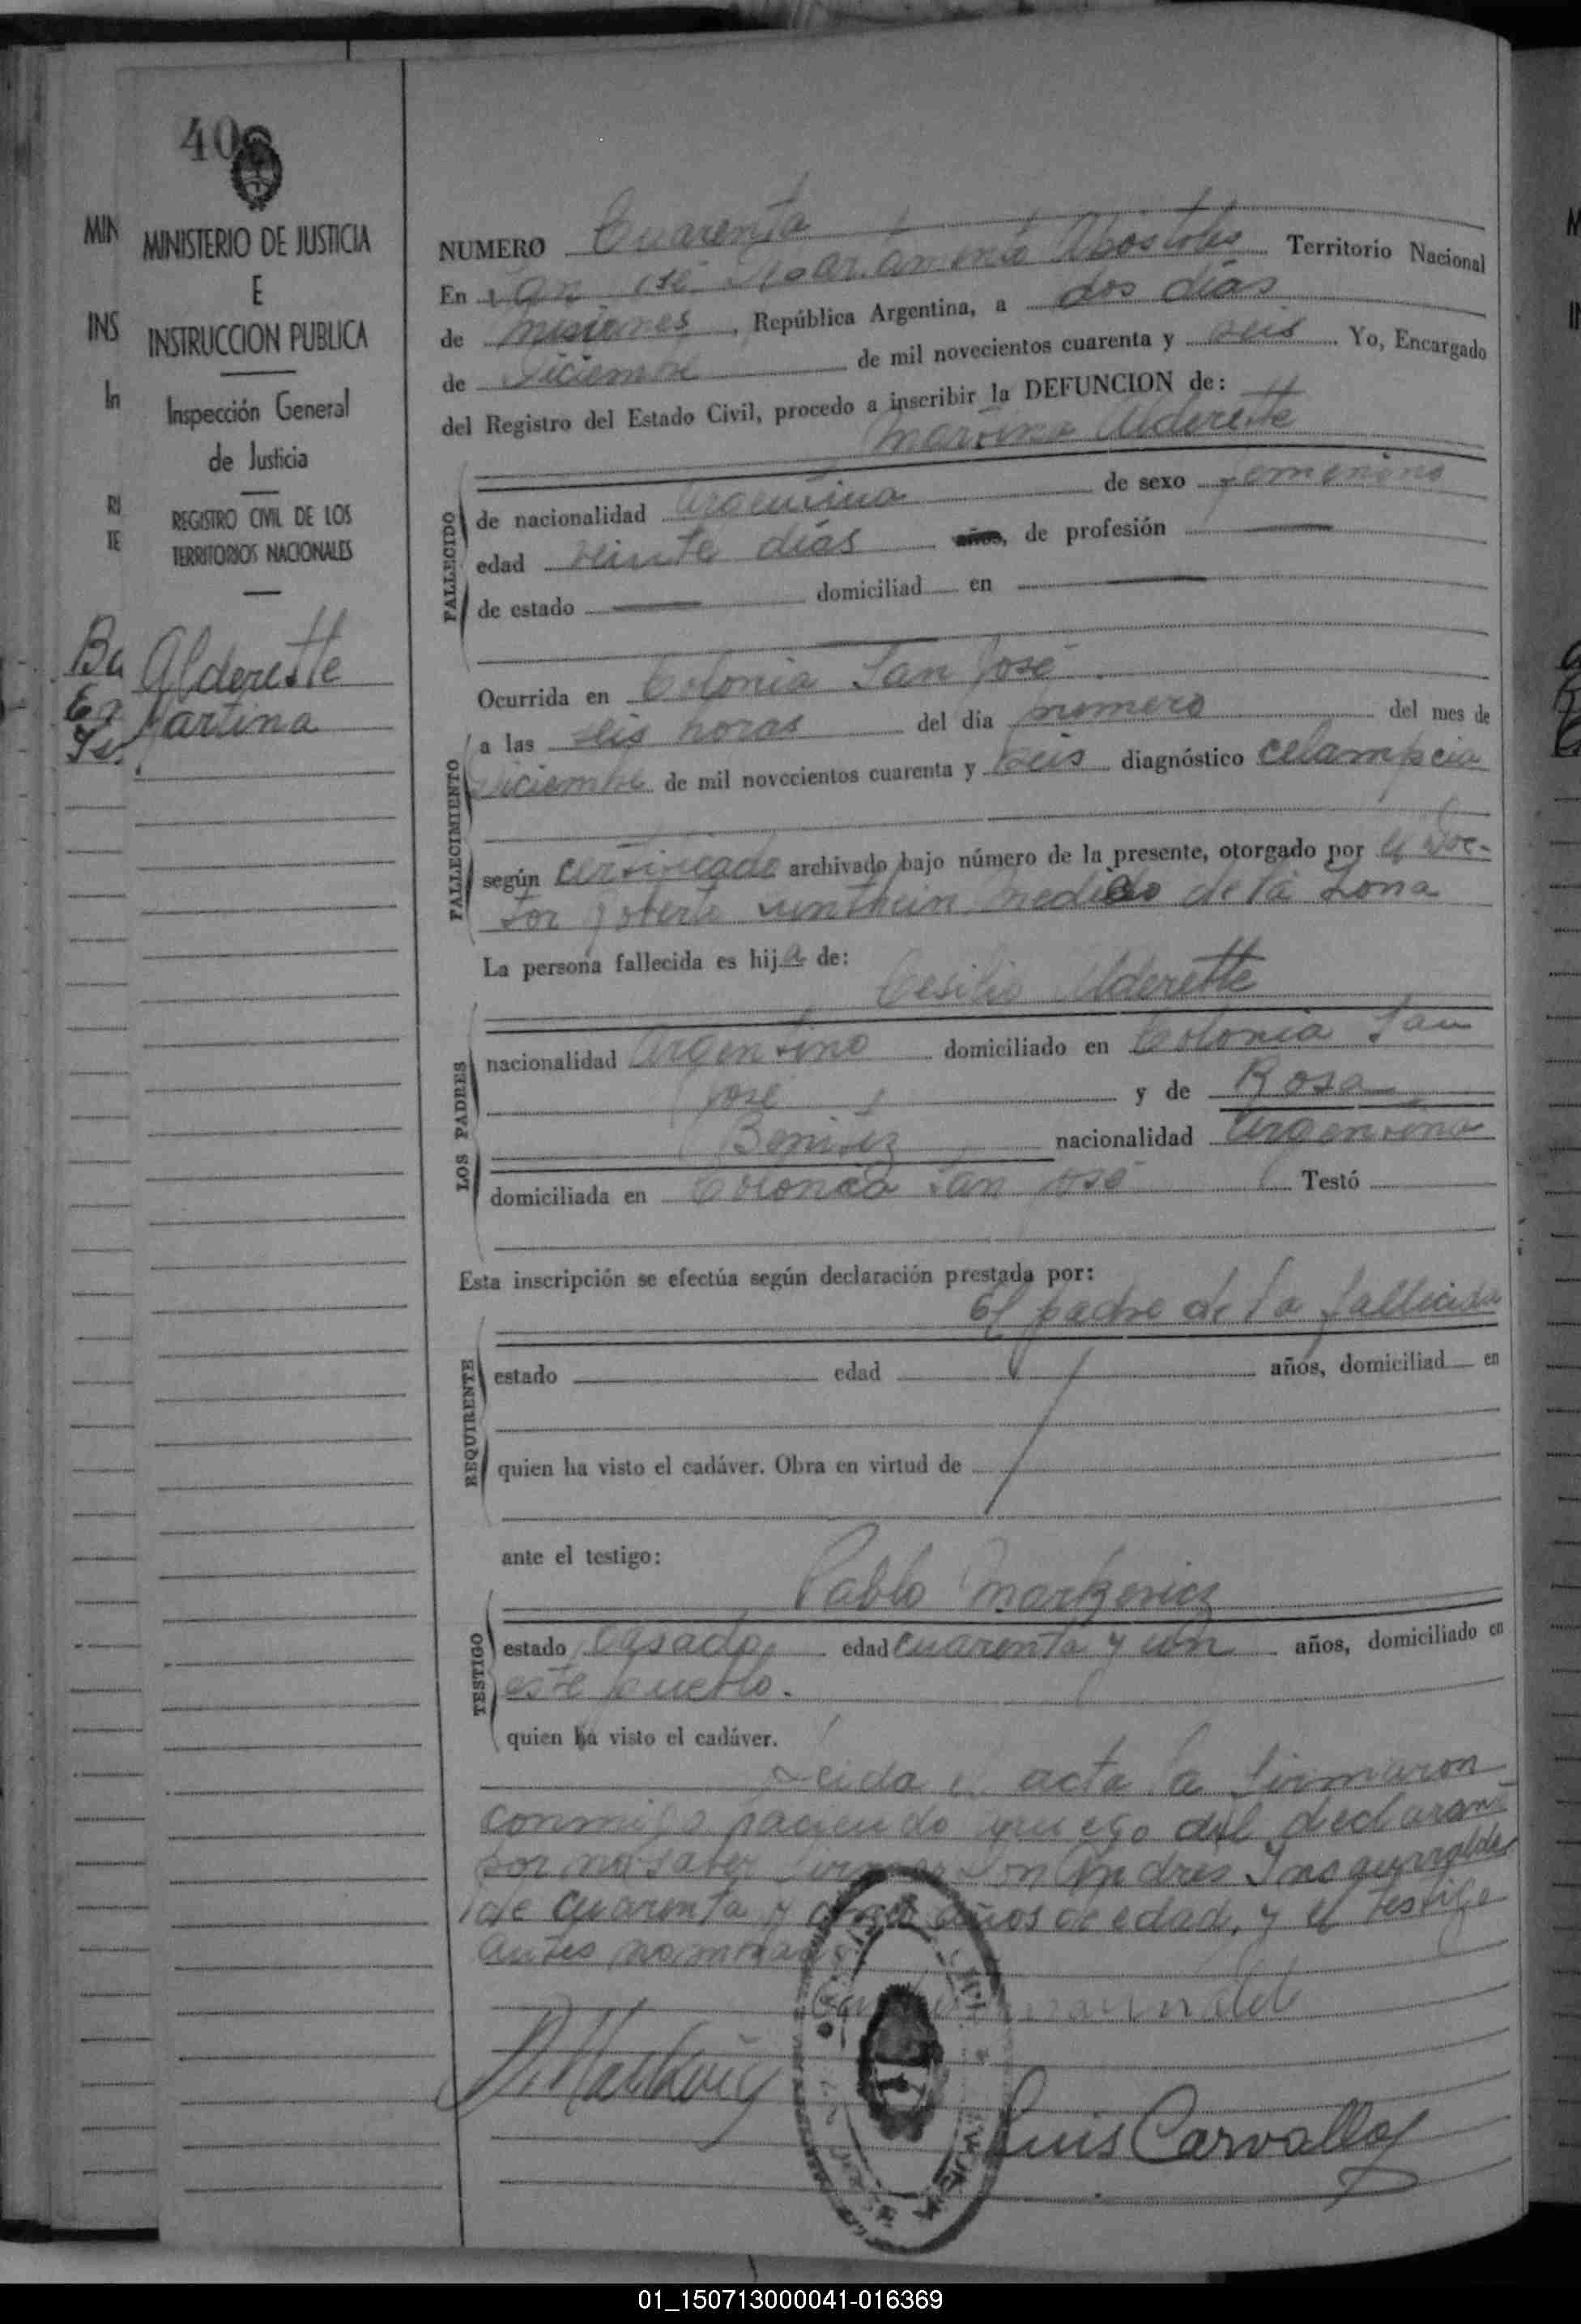 40
MIN
MINISTERIO DE JUSTICIA
E
INS
INSTRUCCION PUBLICA
In
Inspección General
de Justicia
RE
REGISTRO CIVIL DE LOS
TE
TERRITORIOS NACIONALES
Alderette
Martina
NUMERO Cuarenta
En San José Departamento Apóstoles Territorio Nacional
de Misiones, República Argentina, a dos días
de Diciembre de mil novecientos cuarenta y seis Yo, Encargado
del Registro del Estado Civil, procedo a inscribir la DEFUNCION de:
Martina Alderette
FALLECIDO
de nacionalidad Argentina de sexo femenino
edad veinte días años, de profesión
de estado domiciliad en
Ocurrida en Colonia San José
FALLECIMIENTO
a las seis horas del día primero del mes de
diciembre de mil novecientos cuarenta y seis diagnóstico eclampcia
según certificado archivado bajo número de la presente, otorgado por el Doc-
tor Roberto medico de la zona
La persona fallecida es hija de:
Cesilio Alderette
LOS PADRES
nacionalidad Argentino domiciliado en Colonia San
José y de Rosa
Benitez nacionalidad Argentina
domiciliada en Colonia San José Testó
Esta inscripción se efectúa según declaración prestada por:
El padre de la fallecida
REQUIRENTE
estado edad años, domiciliad en
quien ha visto el cadáver. Obra en virtud de
ante el testigo:
Pablo Markevicz
TESTIGO
estado Casado edad cuarenta y un años, domiciliado en
este pueblo.
quien ha visto el cadáver.
Leida el acta la firmaron
conmigo haciendo a ruego del declarante
por no saber firmar Don Andres
de cuarenta y años de edad, y el testigo
antes nombrado
P. Markevicz
Luis Carvallo
01_150713000041-016369